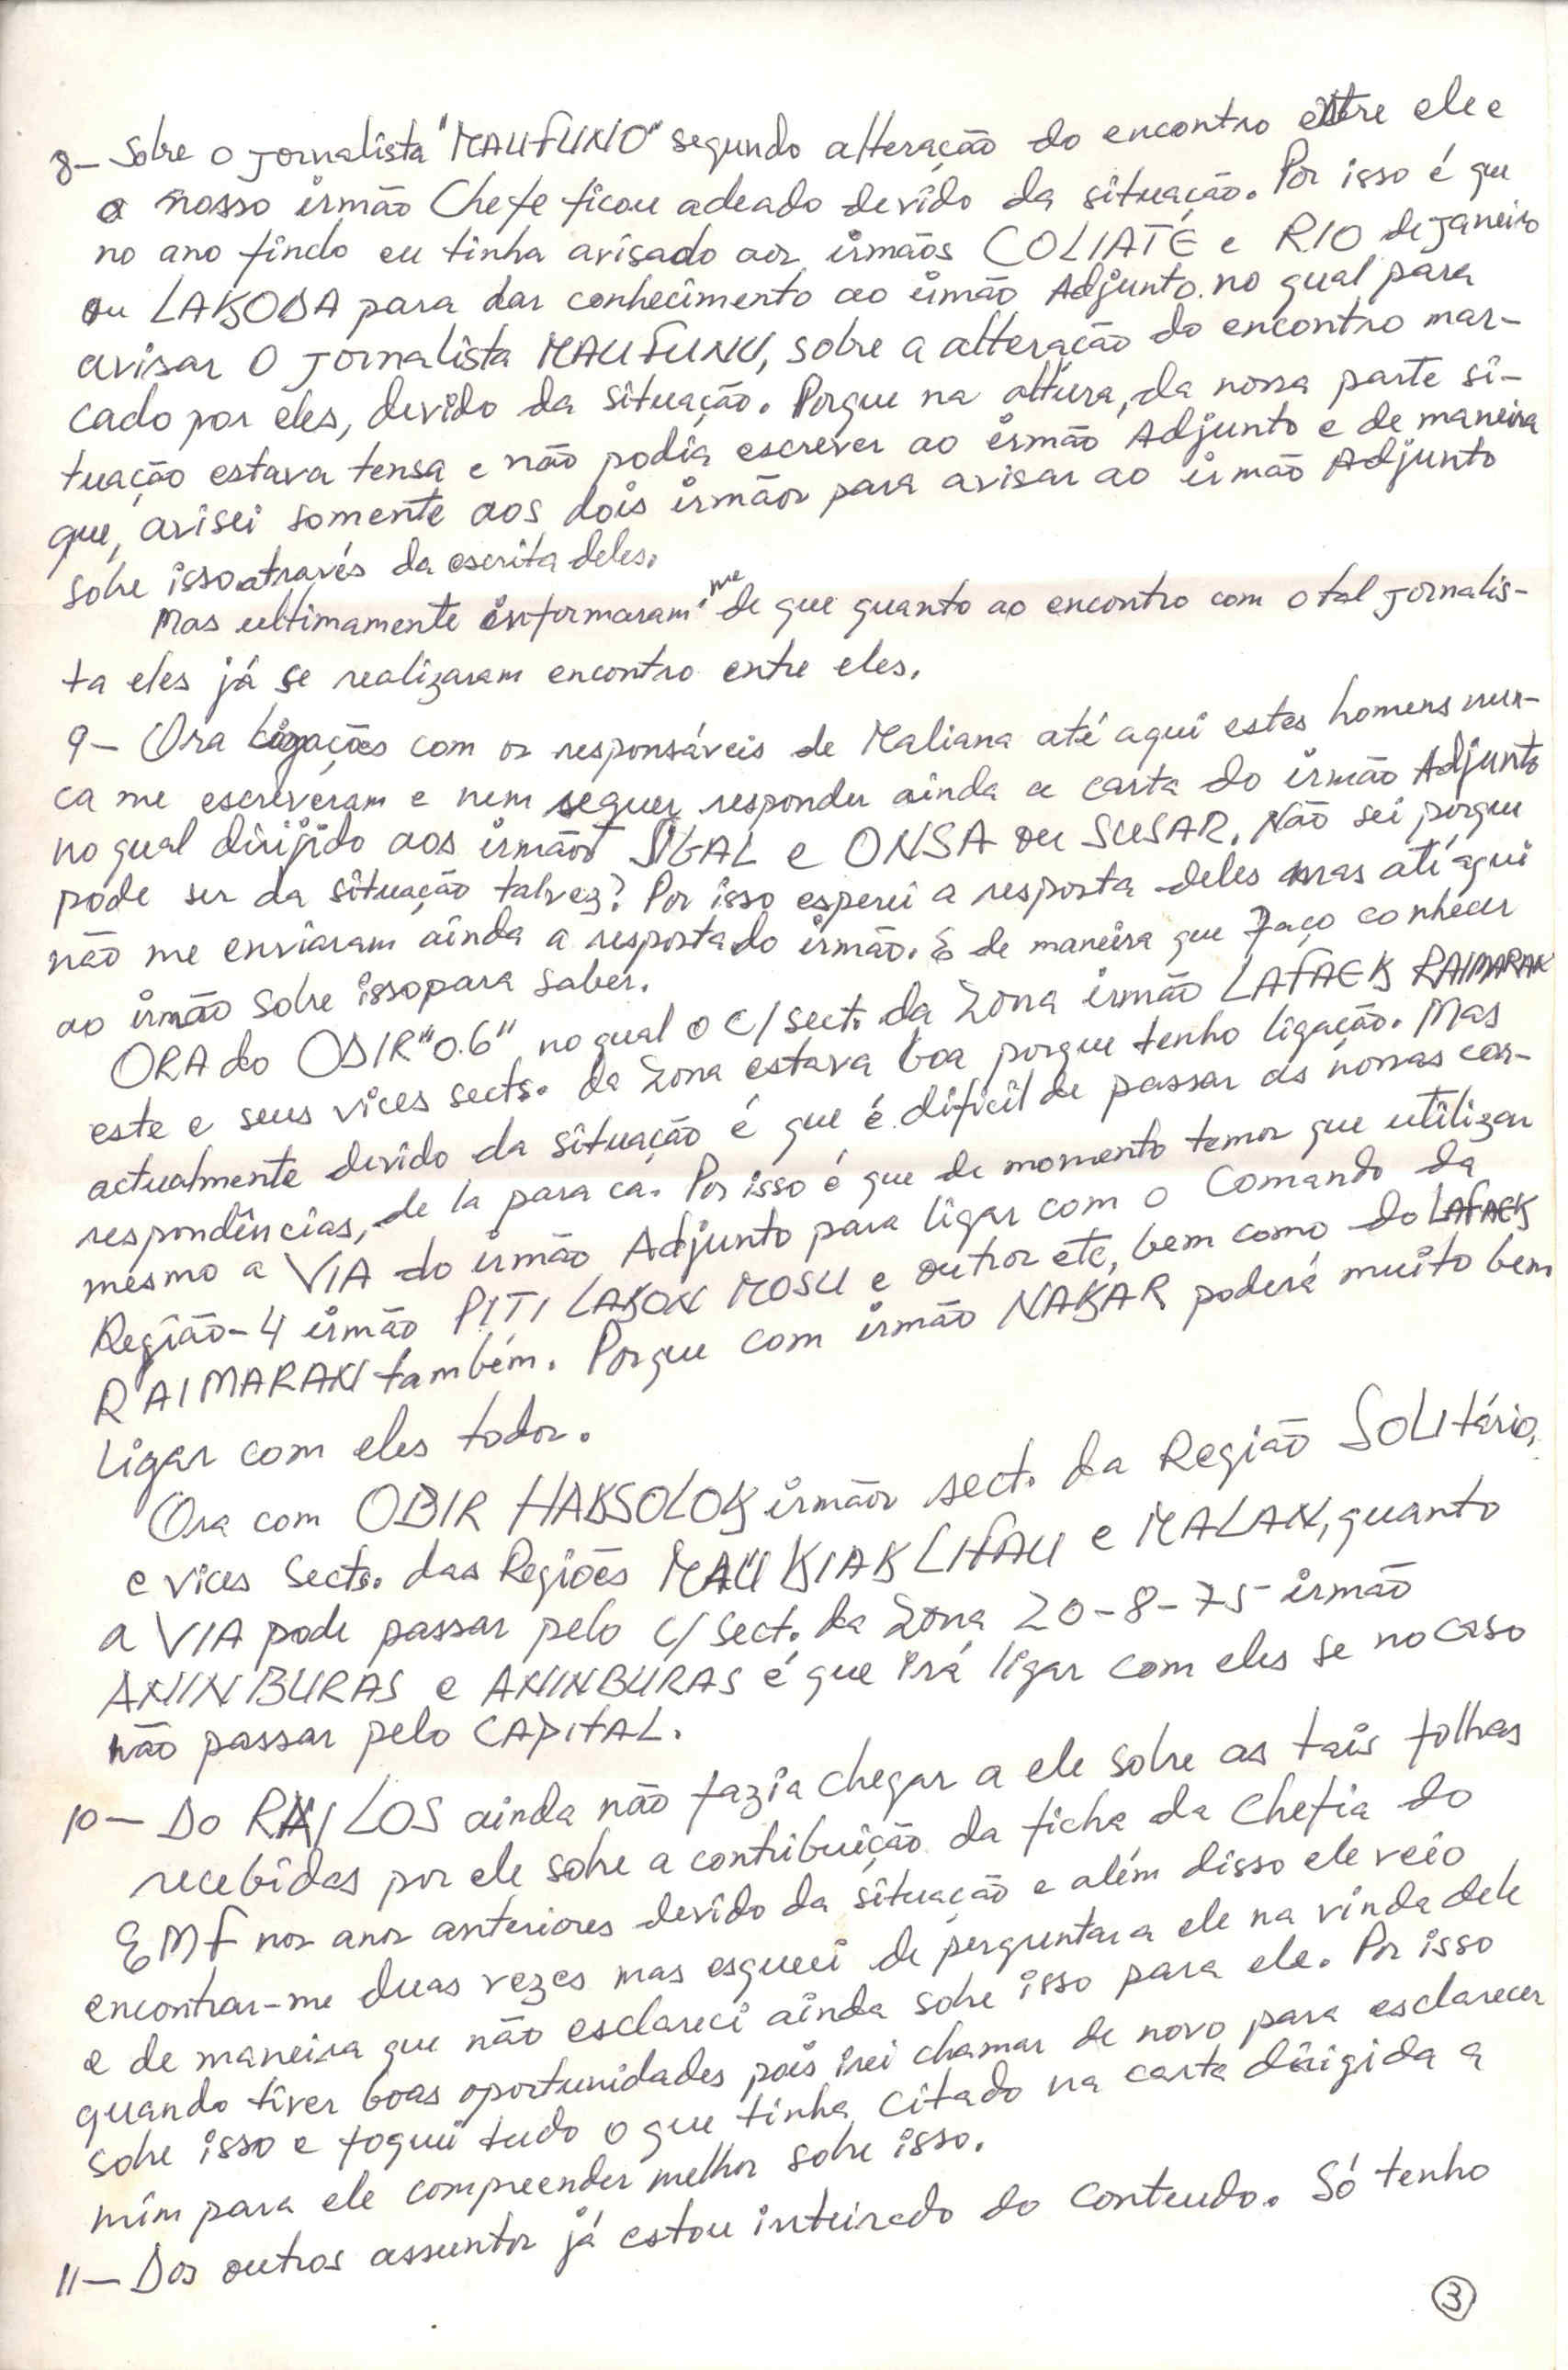 8- Sobre o jornalista "MAUFUNO" segundo alteração do encontro entre ele e
o nosso irmão Chefe ficou adeado devido da situação. Por isso é que
no ano findo eu tinha avisado aos irmãos COLIATE e RIO de janeiro
ou LAKODA para dar conhecimento ao irmão Adjunto no qual para
avisar O jornalista MAUFUNU, sobre a alteração do encontro mar-
cado por eles, devido da situação. Porque na altura, da nossa parte si-
tuação estava tensa e não podia escrever ao irmão Adjunto e de maneira
que, avisei somente aos dois irmãos para avisar ao irmão Adjunto
sobre isso através da escrita deles.
Mas ultimamente informaram-me de que quanto ao encontro com o tal jornalis-
ta eles já se realizaram encontro entre eles.
9- Ora ligações com os responsáveis de Maliana até aqui estes homens nun-
ca me escreveram e nem sequer responder ainda a carta do irmão Adjunto
no qual dirijido aos irmãos SIGAL e ONSA ou SUSAR. Não sei porque
pode ser da situação talvez? Por isso esperei a resposta deles mas até aqui
não me enviaram ainda a resposta do irmão. E de maneira que faço conhecer
ao irmão sobre isso para saber.
ORA do ODIR "0.6" no qual o C/sect. da Zona irmão LAFAEK RAIMARAK
este e seus vices sects. da Zona estava boa porque tenho ligação. Mas
actualmente devido da situação é que é dificil de passar as nossas cor-
respondências, de la para cá. Por isso é que de momento temos que utilizar
mesmo a VIA do irmão Adjunto para ligar com o Comando da
Região-4 irmão PITI LAKON MOSU e outros etc, bem como do LAFAEK
RAIMARAK também. Porque com irmão NAKAR poderá muito bem
ligar com eles todos.
Ora com OBIR HAKSOLOK irmãos sect. da Região SOLItário,
e vices Sects. das Regiões MAU KIAK LIFAU e MALAK, quanto
a VIA pode passar pelo C/Sect. da Zona 20-8-75 irmão
ANIN BURAS e ANINBURAS é que irá ligar com eles se no caso
não passar pelo CAPITAL.
10- Do RAI LOS ainda não fazia chegar a ele sobre as tais folhas
recebidas por ele sobre a contribuição da ficha da Chefia do
EMF nos anos anteriores devido da situação e além disso ele veio
encontrar-me duas vezes mas esqueci de perguntar a ele na vinda dele
e de maneira que não esclareci ainda sobre isso para ele. Por isso
quando tiver boas oportunidades pois irei chamar de novo para esclarecer
sobre isso e foquei tudo o que tinha citado na carta dirigida a
mim para ele compreender melhor sobre isso.
11- Dos outros assuntos já estou inteirado do conteudo. Só tenho
3